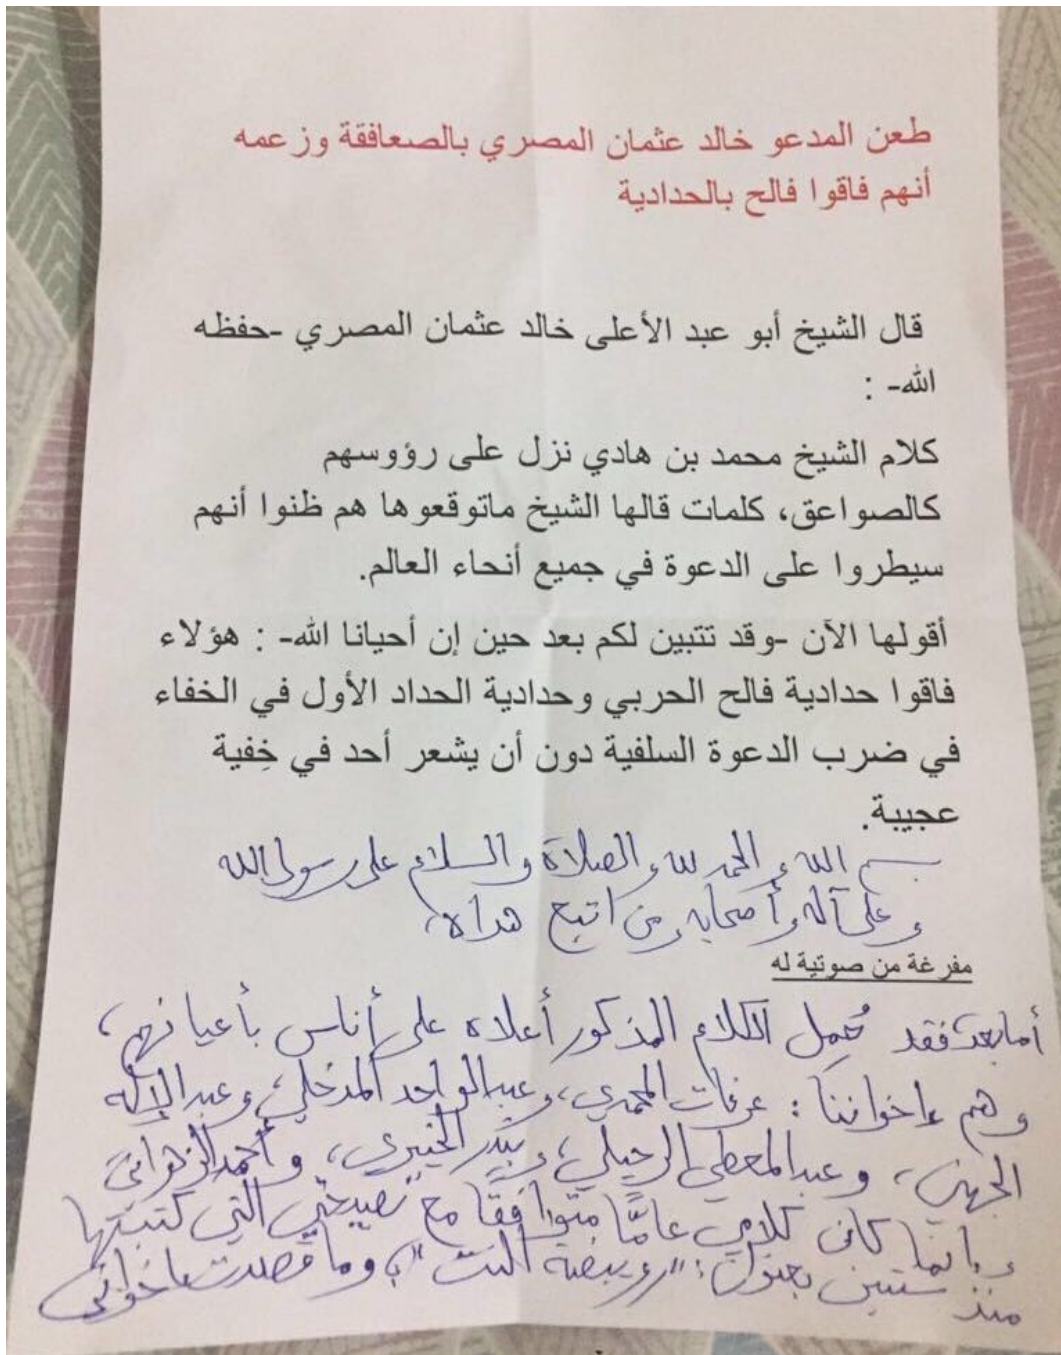 طعن المدعو خالد عثمان المصري بالصعافقة وزعمه
أنهم فاقوا فالح بالحدادية
قال الشيخ أبو عبد الأعلى خالد عثمان المصري -حفظه
الله- :
كلام الشيخ محمد بن هادي نزل على رؤوسهم
كالصواعق، كلمات قالها الشيخ ماتوقعوها هم ظنوا أنهم
سيطروا على الدعوة في جميع أنحاء العالم.
أقولها الآن -وقد تتبين لكم بعد حين إن أحيانا الله- : هؤلاء
فاقوا حدادية فالح الحربي وحدادية الحداد الأول في الخفاء
في ضرب الدعوة السلفية دون أن يشعر أحد في خِفية
عجيبة.
بسم الله والحمد لله والصلاة والسلام على رسول الله
وعلى آله وأصحابه ومن اتبع هداه،
مفرغة من صوتية له
أما بعد، فقد حُمل الكلام المذكور أعلاه على أناس بأعيانهم،
وهم إخواننا: عرفات المحمدي، وعبد الواحد المدخلي، وعبد الإله
الجهني، وعبد المعطي الرحيلي، وبندر الخيبري، وأحمد الزهراني
وإنما كان كلامي عامًّا متوافقًا مع نصيحتي التي كتبتها
منذ سنتين بعنوان: "رويبضة النت"، وما قصدت إخواني